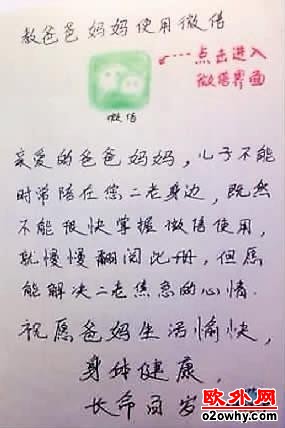 教爸爸妈妈使用微信
点击进入
微信界面
微信
亲爱的爸爸妈妈,儿子不能
时常陪在您二老身边,既然
不能很快掌握微信使用,
就慢慢翻阅此册,但愿
能解决二老焦急的心情.
祝愿爸妈生活愉快,
身体健康,
长命百岁
欧外网
o2owhy.com